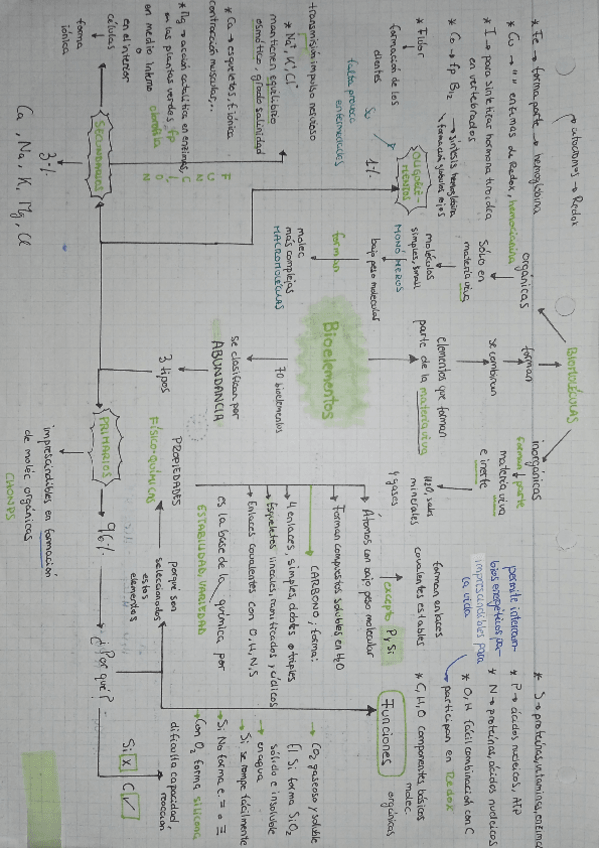 BIOMOLÉCULAS
forman
se combinan
elementos que forman
parte de la materia viva
Bioelementos
70 bioelementos
se clasifican por
ABUNDANCIA
3 tipos
orgánicas
Sólo en
materia viva
moléculas
simples, small
MONÓMEROS
bajo peso molecular
forman
molec
más complejas
MACROMOLÉCULAS
inorgánicas
forman parte
materia viva
e inerte
H2O, sales
minerales
4 gases
* Fe → forma parte → hemoglobina
* Cu → " " enzimas de Redox, hemocianina
* I → para sintetizar hormona tiroidea
en vertebrados
* Co → fp B12 → síntesis hemoglobina
formación glóbulos rojos
* Flúor
formación de los
dientes
falta provoca
enfermedades
OLIGOELE-
MENTOS
1%
transmisión impulso nervioso
* Na+, K+, Cl-
mantienen equilibrio
osmótico, grado salinidad
* Ca → esqueletos, f. iónica
contracción muscular,...
* Mg → acción catalítica en enzimas,
en las plantas verdes fp
clorofila
en medio interno
o
en el interior
células
forma
iónica
FUNCIÓN
SECUNDARIOS
3%
Ca, Na, K, Mg, Cl
PRIMARIOS
imprescindibles en formación
de moléc orgánicas.
CHONPS
96%
¿Por qué?
porqué son
seleccionados
estos
elementos
PROPIEDADES
FÍSICO-QUÍMICAS
Átomos con bajo peso molecular
Forman compuestos solubles en H2O
CARBONO, forma:
4 enlaces, simples, dobles o triples
Esqueletos lineales, ramificados y cíclicos
Enlaces covalentes con O, H, N, S
es la base de la química por
ESTABILIDAD, VARIEDAD
forman enlaces
covalentes estables
excepto P y Si
Funciones
* S → proteínas, vitamina, enzima
* P → ácidos nucleicos, ATP
* N → proteínas, ácidos nucleicos
* O, H fácil combinación con C
participan en Redox
* C, H, O componentes básicos
molec.
orgánicas
permite intercam-
bios energéticos por
imprescindibles para
la vida
Si X C ✓
dificulta capacidad,
reacción
CO2 gaseoso y soluble
El Si forma SiO2
sólido e insoluble
en agua
Si se rompe fácilmente
Si No forma e. = o ≡
Con O2 forma silicona